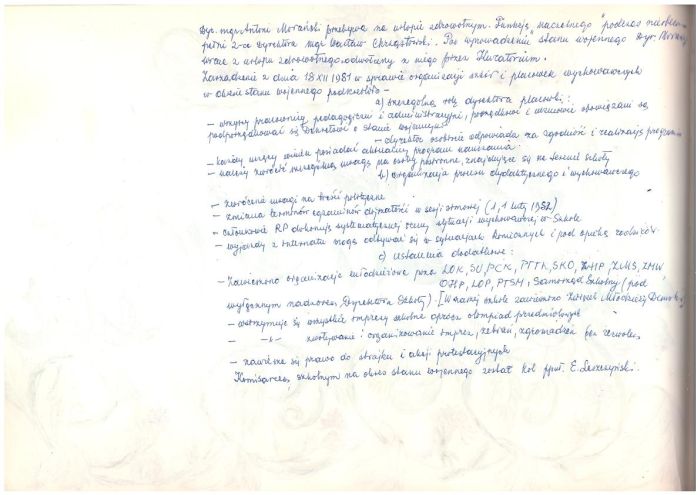 Dyr. mgr Antoni Morański przebywa na urlopie zdrowotnym. Funkcję naczelnego "podczas nieobecn.
pełni z-ca dyrektora mgr Wacław Chrząstowski. Po "wprowadzeniu" stanu wojennego Dyr. Morań.
wraca z urlopu zdrowotnego, odwołany z niego przez Kuratorium.
Zarządzenie z dnia 18 XII 1981 w sprawie organizacji szkół i placówek wychowawczych
w okresie stanu wojennego podkreślało -
a) szczególną rolę dyrektora placówki:
- wszyscy pracownicy, pedagogiczni i administracyjni, porządkowi i uczniowie zobowiązani są
podporządkować się Dekretowi o stanie wojennym
- dyrektor osobiście odpowiada za zgodność i realizację programu
- każdy uczący winien posiadać aktualny program nauczania
- należy zwrócić szczególną uwagę na osoby postronne, znajdujące się na terenie szkoły
b) organizacja procesu dydaktycznego i wychowawczego
- zwrócenie uwagi na treści polityczne
- zmiana terminów egzaminów dojrzałości w sesji zimowej (1, 2 luty 1982)
- członkowie RP dokonują systematycznej oceny sytuacji wychowawczej w Szkole
- wyjazdy z internatu mogą odbywać się w sytuacjach koniecznych i pod opieką rodziców
c) ustalenia dodatkowe:
- Zawieszono organizacje młodzieżowe poza LOK, SU, PCK, PTTK, SKO, ZHP, ZMS, ZMW
OHP, LOP, PTSM, Samorząd Szkolny (pod
wyłącznym nadzorem Dyrektora Szkoły). [W naszej szkole zawieszono Związek Młodzieży Demokr.]
- wstrzymuje się wszystkie imprezy szkolne oprócz olimpiad przedmiotowych
- -"- zwoływanie i organizowanie imprez, zebrań, zgromadzeń bez zezwoleń,
- zawiesza się prawo do strajku i akcji protestacyjnych
Komisarzem szkolnym na okres stanu wojennego został kol. ppor. E. Leszczyński.